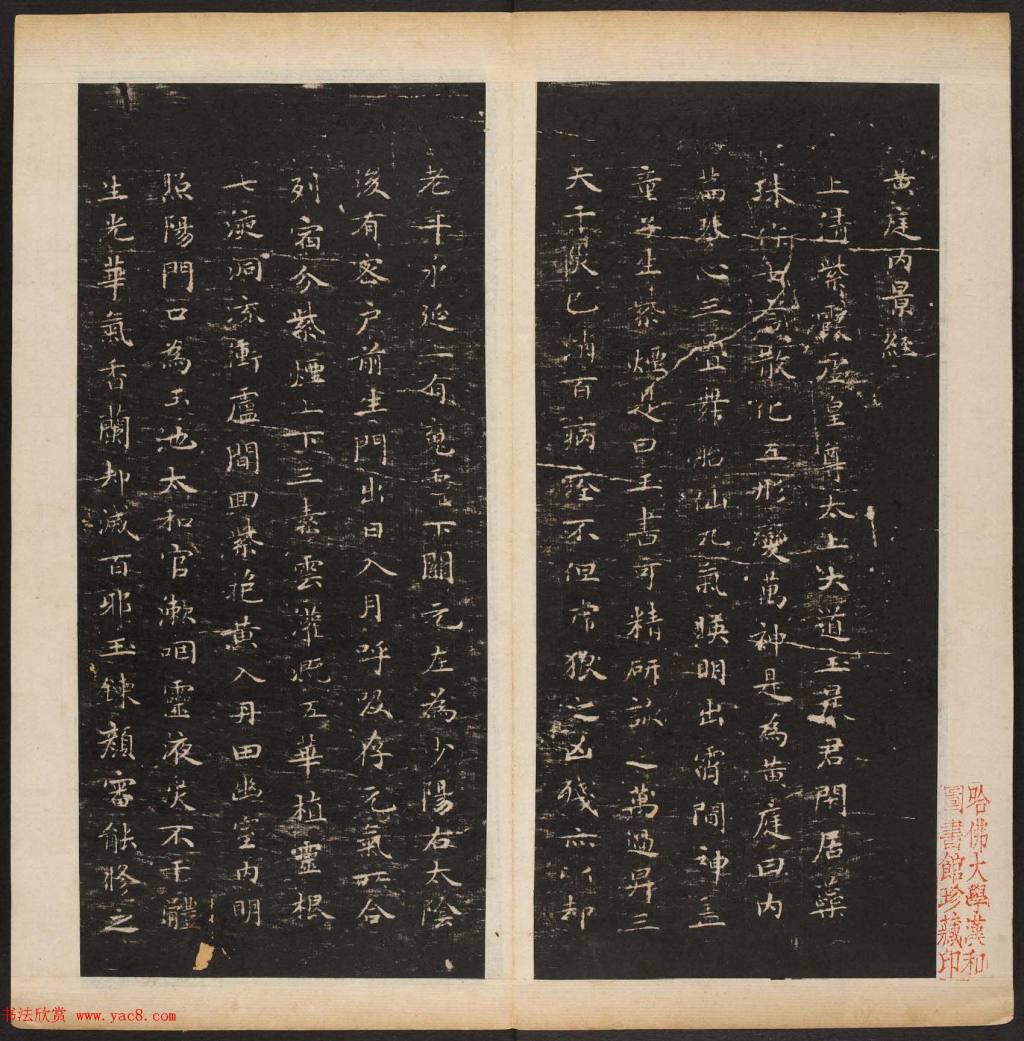 黃庭内景經
上清紫霞虛皇尊太上大道玉晨君閒居蘂
珠作七言散化五形變萬神是為黃庭曰内
篇琴心三疊舞胎仙九氣暎明出霄間神盖
童子生紫煙是曰玉書可精研詠之萬過昇三
天千災已消百病痊不但帍狼之凶殘亦以却
老年永延上有魂靈下關元左為少陽右太陰
後有密户前生門出日入月呼吸存元氣所合
列宿分紫煙上下三素雲灌溉五華植靈根
七液洞流衝廬間回紫抱黃入丹田幽室内明
照陽門口為玉池太和官漱咽靈液災不干體
生光華氣香蘭却滅百邪玉鍊顏審能修之
哈佛大學漢和
圖書館珍藏印
书法欣赏 www.yac8.com